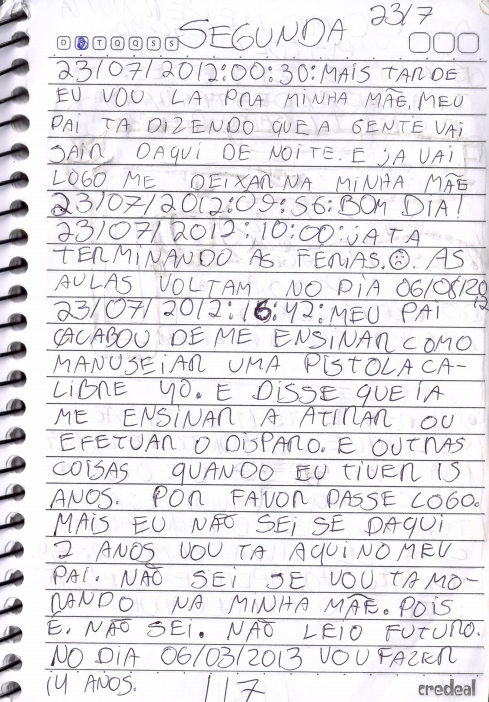 23/7
SEGUNDA
D S T Q Q S S
23/07/2012:00:30:MAIS TARDE
EU VOU LA PRA MINHA MÃE, MEU
PAI TA DIZENDO QUE A GENTE VAI
SAIR DAQUI DE NOITE. E JA VAI
LOGO ME DEIXAR NA MINHA MÃE
23/07/2012:09:56:BOM DIA!
23/07/2012:10:00:JA TA
TERMINANDO AS FERIAS.☹. AS
AULAS VOLTAM NO DIA 06/08/2012
23/07/2012:16:42:MEU PAI
ACABOU DE ME ENSINAR COMO
MANUSEIAR UMA PISTOLA CA-
LIBRE 40. E DISSE QUE IA
ME ENSINAR A ATIRAR OU
EFETUAR O DISPARO. E OUTRAS
COISAS QUANDO EU TIVER 15
ANOS. POR FAVOR PASSE LOGO.
MAIS EU NÃO SEI SE DAQUI
2 ANOS VOU TA AQUI NO MEU
PAI. NÃO SEI SE VOU TA MO-
RANDO NA MINHA MÃE. POIS
É. NÃO SEI. NÃO LEIO FUTURO.
NO DIA 06/03/2013 VOU FAZER
14 ANOS.
117
credeal